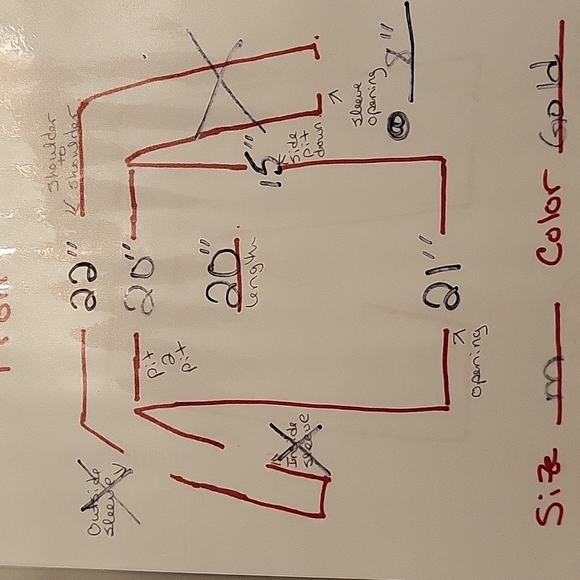 Shoulder
to
Shoulder
22"
20"
pit
2
pit
20"
Length
15"
Side
pit
down
Sleeve
opening
8"
Outside
Sleeve
Inside
Sleeve
21"
opening
Size m Color Gold